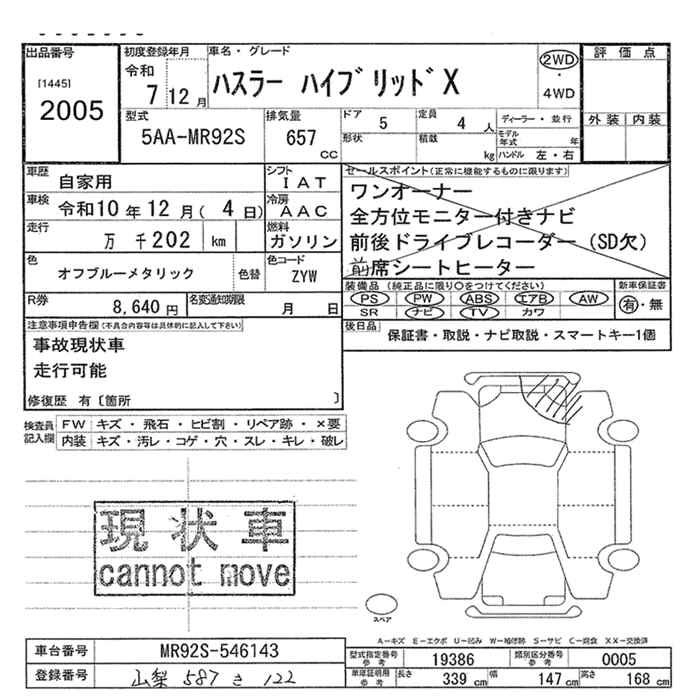 出品番号
[1445]
2005
初度登録年月
令和
7 12 月
車名・グレード
ハスラー ハイブリッドX
2WD
・
4WD
評価点
外装 内装
型式
5AA-MR92S
排気量
657
cc
ドア 5
形状
定員 4 人
積載 kg
ディーラー・並行
モデル年式 年
ハンドル 左・右
車歴
自家用
シフト
IAT
車検
令和10年12月(4日)
冷房
AAC
走行
万 千202 km
燃料
ガソリン
色
オフブルーメタリック
色替
色コード
ZYW
R券
8,640 円
名変通知期限
月 日
セールスポイント(正常に機能するものに限ります)
ワンオーナー
全方位モニター付きナビ
前後ドライブレコーダー(SD欠)
前席シートヒーター
装備品(純正品に限り○をつけてください)
PS PW ABS エアB AW
SR ナビ TV カワ
新車保証書
有・無
後日品
保証書・取説・ナビ取説・スマートキー1個
注意事項申告欄(不具合内容等は具体的に記入して下さい)
事故現状車
走行可能
修復歴 有〔箇所 〕
検査員記入欄
FW キズ・飛石・ヒビ割・リペア跡・×要
内装 キズ・汚レ・コゲ・穴・スレ・キレ・破レ
現状車
cannot move
スペア
A-キズ E-エクボ U-凹み W-補修跡 S-サビ C-腐食 XX-交換済
車台番号 MR92S-546143
登録番号 山梨 587 き 122
型式指定番号参考 19386
類別区分番号参考 0005
車庫証明用参考 長さ 339 cm 幅 147 cm 高さ 168 cm